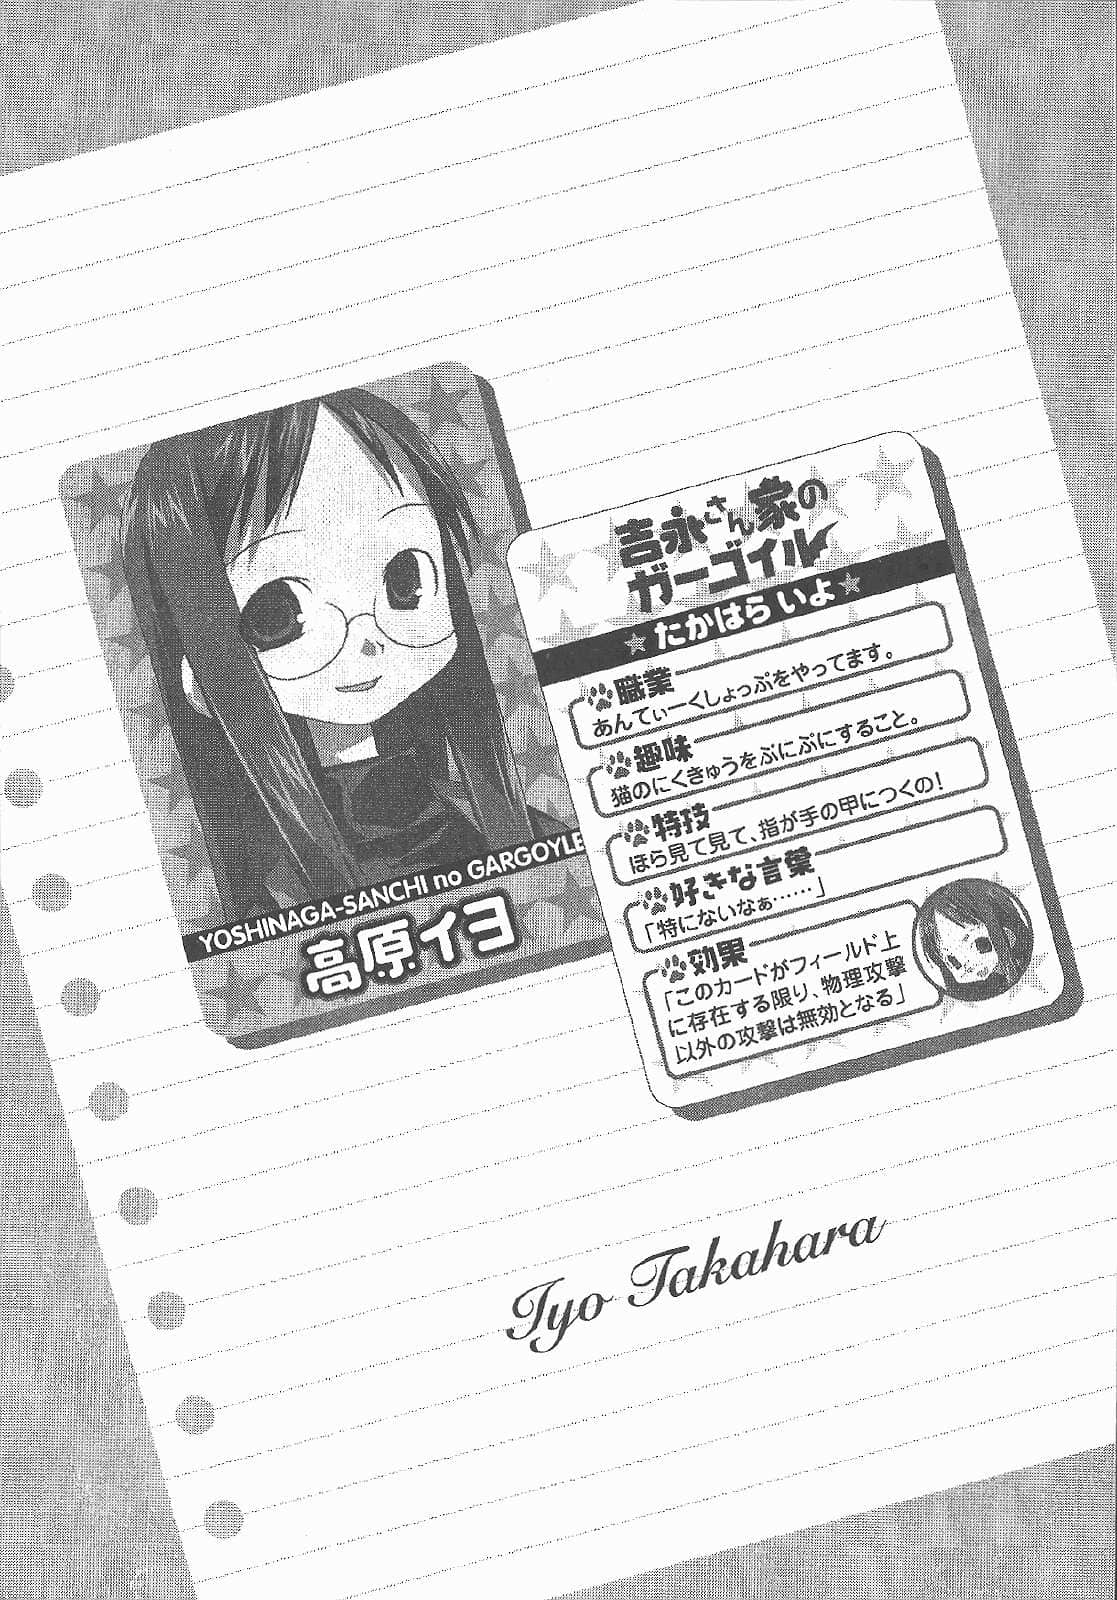 YOSHINAGA-SANCHI no GARGOYLE
高原イヨ
吉永さん家の
ガーゴイル
★たかはら いよ★
職業
あんてぃーくしょっぷをやってます。
趣味
猫のにくきゅうをぷにぷにすること。
特技
ほら見て見て、指が手の甲につくの!
好きな言葉
「特にないなぁ……」
効果
「このカードがフィールド上
に存在する限り、物理攻撃
以外の攻撃は無効となる」
Iyo Takahara